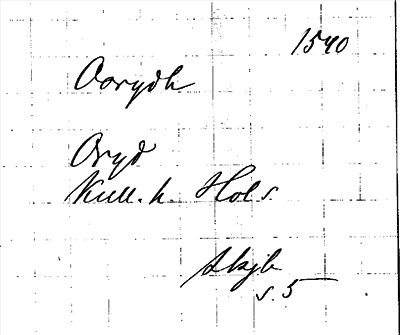 1540
Oorydh
Oryd
Kull. h. Hols.
skjb
s. 5